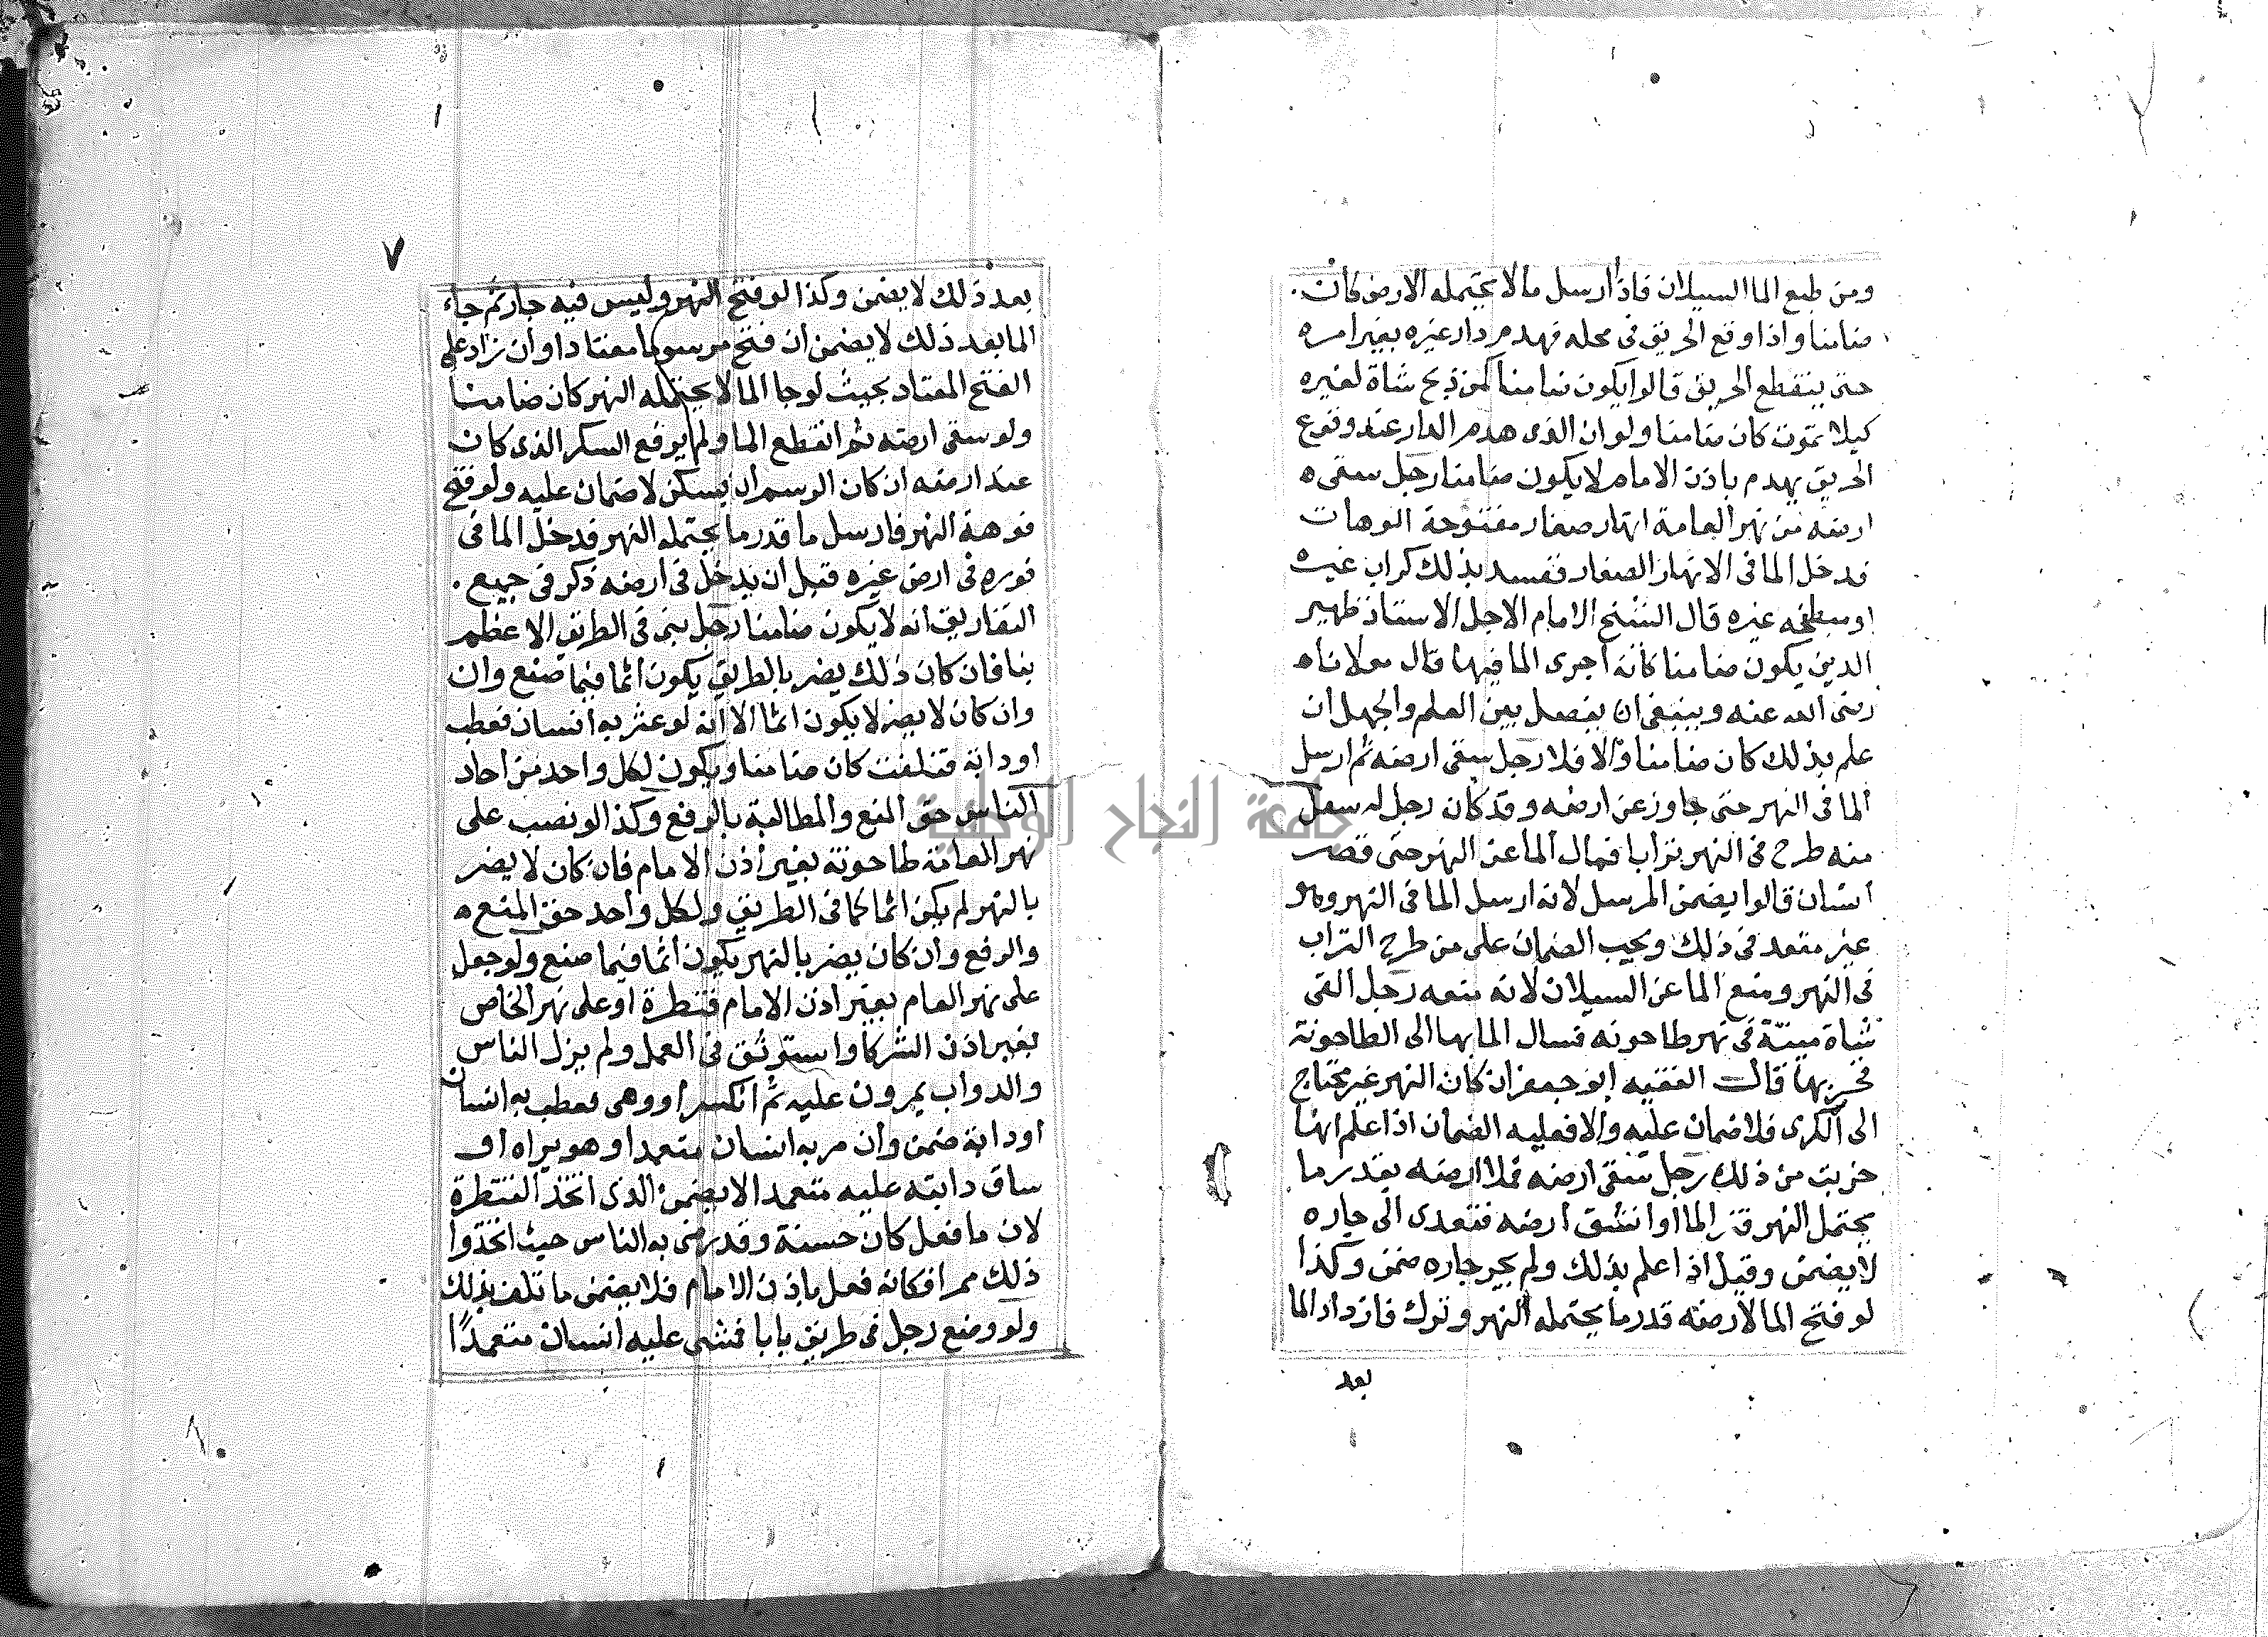 ومن طبع الما السيلان فاذا ارسل ما لا يحتمله الارض كان
ضامنا واذا وقع الحريق فى محله فهدم دار غيره بغير امره
حتى ينقطع الحريق قالوا يكون ضامنا كمن ذبح شاة لغيره
كيلا تموت كان ضامنا ولو ان الذى هدم الدار عند وقوع
الحريق يهدم باذن الامام لا يكون ضامنا رجل سقى
ارضه من نهر العامة انهار صغار مفتوحة الفوهات
فدخل الما فى الانهار الصغار ففسد بذلك كراب غيره
او مبطخه غيره قال الشيخ الامام الاجل الاستاذ ظهير
الدين يكون ضامنا كانه اجرى الما فيها قال مولانا
رضى الله عنه وينبغى ان يفصل بين العلم والجهل ان
علم بذلك كان ضامنا والا فلا رجل سقى ارضه ثم ارسل
الما فى النهر حتى جاوز عن ارضه وقد كان رجل له سفل
منه طرح فى النهر ترابا فمال الما عن النهر حتى قصر
انسان قالوا يضمن المرسل لانه ارسل الما فى النهر وهو
غير متعد فى ذلك ويجب الضمان على من طرح التراب
فى النهر ومنع الما عن السيلان لانه منعه رجل القى
شاة ميتة فى نهر طاحونه فسال الما بها الى الطاحونة
فخربها قال الفقيه ابو جعفر ان كان النهر غير محتاج
الى الكرى فلا ضمان عليه والا فعليه الضمان اذا علم انها
خربت من ذلك رجل سقى ارضه فملا ارضه بقدر ما
يحتمل النهر الما او انشق ارضه فتعدى الى جاره
لا يضمن وقيل اذا علم بذلك ولم يخبر جاره ضمن وكذا
لو فتح الما لارضه قدر ما يحتمله النهر وترك فازداد الما
بعد
٧
بعد ذلك لا يضمن وكذا لو فتح النهر وليس فيه جار ثم جاء
الما بعد ذلك لا يضمن ان فتح مرسوما معتادا وان زاد على
الفتح المعتاد بحيث لو جا الما لا يحتمله النهر كان ضامنا
ولو سقى ارضه ثم انقطع الما ولم يوقع السكر الذى كان
عند ارضه ان كان الرسم ان يسكن لا ضمان عليه ولو فتح
فوهة النهر فارسل ما قدر ما يحتمله النهر فدخل الما فى
فوره فى ارض غيره قبل ان يدخل فى ارضه ذكر فى جميع
التفاريق انه لا يكون ضامنا رجل بنى فى الطريق الاعظم
بنا فان كان ذلك يضر بالطريق يكون اثما فيما صنع وان
وان كان لا يضر لا يكون اثما الا انه لو عثر به انسان فعطب
او دابة فتلفت كان ضامنا ويكون لكل واحد من احاد
الناس حق المنع والمطالبة بالرفع وكذا لو نصب على
نهر العامة طاحونة بغير اذن الامام فان كان لا يضر
بالنهر لم يكن اثما كما فى الطريق ولكل واحد حق المنع
والرفع وان كان يضر بالنهر يكون اثما فيما صنع ولو جعل
على نهر العام بغير اذن الامام قنطرة او على نهر الخاص
بغير اذن الشركا واستوثق فى العمل ولم يزل الناس
والدواب يمرون عليه ثم انكسر او وهى فعطب به انسان
او دابة ضمن وان مر به انسان متعمدا وهو يراه او
ساق دابته عليه متعمدا لا يضمن الذى اتخذ القنطرة
لان ما فعل كان حسنة وقد رضى به الناس حيث اتخذوا
ذلك ممرا فكانه فعل باذن الامام فلا يضمن ما تلف بذلك
ولو وضع رجل فى طريق بابا فمشى عليه انسان متعمدًا
جامعة النجاح الوطنية